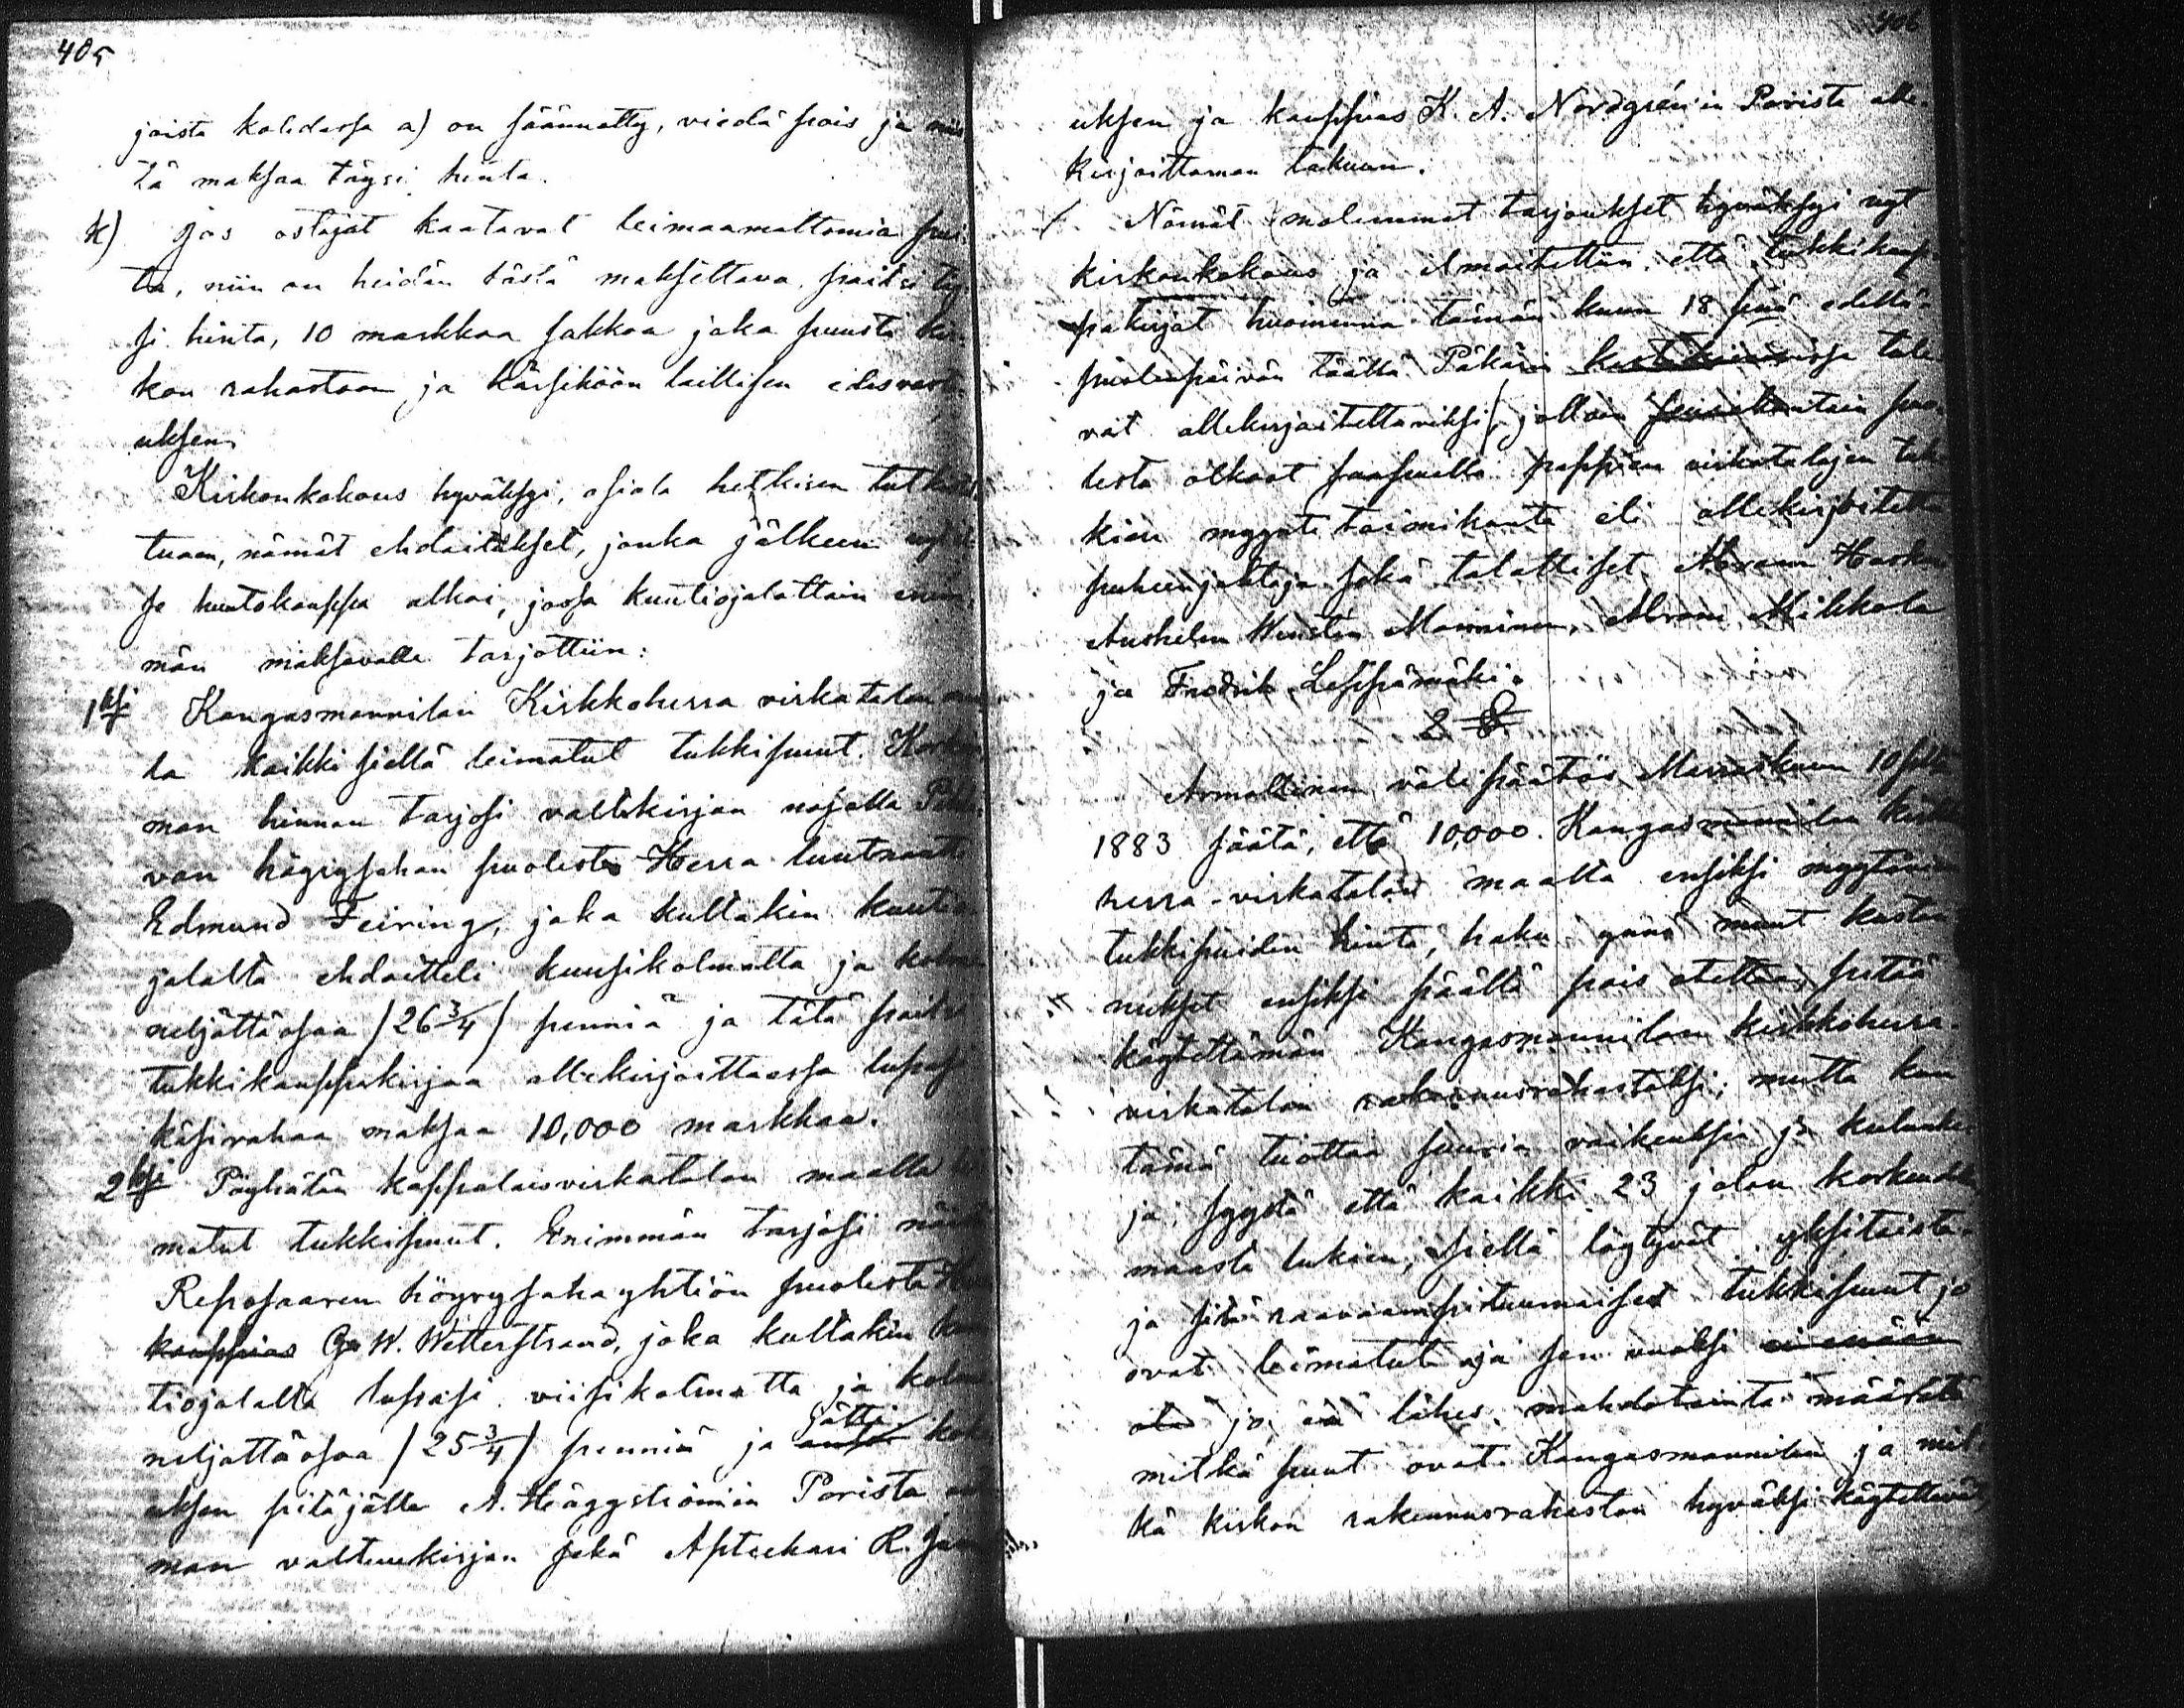 405
joista kohdassa a) on säännetty, viedä pois ja
tä maksaa täysi hinta.
k) Jos ostajat kaatavat leimaamattomia pui-
ta, niin on heidän tästä maksettava, paitsi täy-
si hinta, 10 markkaa sakkoa joka puusta kir-
kon rahastoon ja kärsiköön laillisen edesvast-
uksen.
Kirkonkokous hyväksyi, asiata hetkisen tutkis-
tuaan, nämät ehdoitukset, jonka jälkeen
se huutokauppa alkoi, jossa kuutiojalattain enim-
män maksavalle tarjottiin:
1ksi Kangasmannilan Kirkkoherra virkatalon
ta kaikki siellä leimatut tukkipuut. Korkeim-
man hinnan tarjosi valtakirjan nojalla
van höyrysahan puolesta Herra luutnantti
Edmund Feiring, joka kultakin kuutio-
jalalta ehdoitteli kuusikolmatta ja kolme
neljättäosaa (26 3/4) penniä ja tätä paitsi
tukkikauppakirjaa allekirjoittaessa lupasi
käsirahaa maksaa 10,000 markkaa.
2ksi Pöyhätän kappalaisvirkatalon maalla lei-
matut tukkipuut. Enimmän tarjosi
Reposaaren höyrysahayhtiön puolesta
kauppias G. W. Wetterstrand, joka kultakin kuu-
tiojalalta lupasi viisikolmatta ja kolme
neljättäosaa (25 3/4) penniä ja jätti
uksen pitäjälle A. Häggströmin Porista
man valtuukirjan sekä Apteekari R.
406
uksen ja kauppias K. A. Nordgrén'in Porista alle-
kirjoittaman takuun.
Nämät molemmat tarjoukset hyväksyi nyt
kirkonkokous ja ilmoitettiin, että tukkikaup-
pakirjat huomenna tämän kuun 18 pnä edellä-
puolenpäivän täällä tule-
vat allekirjoitettaviksi, jolloin seurakuntain puo-
lesta olkoot saapuvilla pappien virkatalojen tuk-
kien myynti toimikunta eli allekirjoittanut
puheenjohtaja sekä talolliset
Manninen, Mikkola
ja Fredrik Leppämäki.
2 §.
Armollinen välipäätös Marraskuun 10 pltä
1883 säätä, että 10,000 Kangasmannilan kirkko-
herra-virkatalon maalta ensiksi myytävien
tukkipuiden hinta, haku ynnä muut kustan-
nukset ensiksi päältä pois otettua, pitää
käytettämän Kangasmannilan kirkkoherra-
virkatalon rakennusrahastoksi; mutta kun
tämä tuottaa suuria vaikeuksia ja kulunke-
ja, syystä että kaikki 23 jalan korkeudella
maasta lukien, siellä löytyvät yksitoista-
ja sitä raavaampituumaiset tukkipuut jo
ovat leimatut, ja sen vuoksi ei enään
ole jo lähes mahdotointa määrätä
mitkä puut ovat Kangasmannilan ja mit-
kä kirkon rakennusrahaston hyväksi käytettävät,